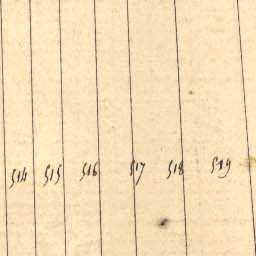 514 515 516 517 518 519